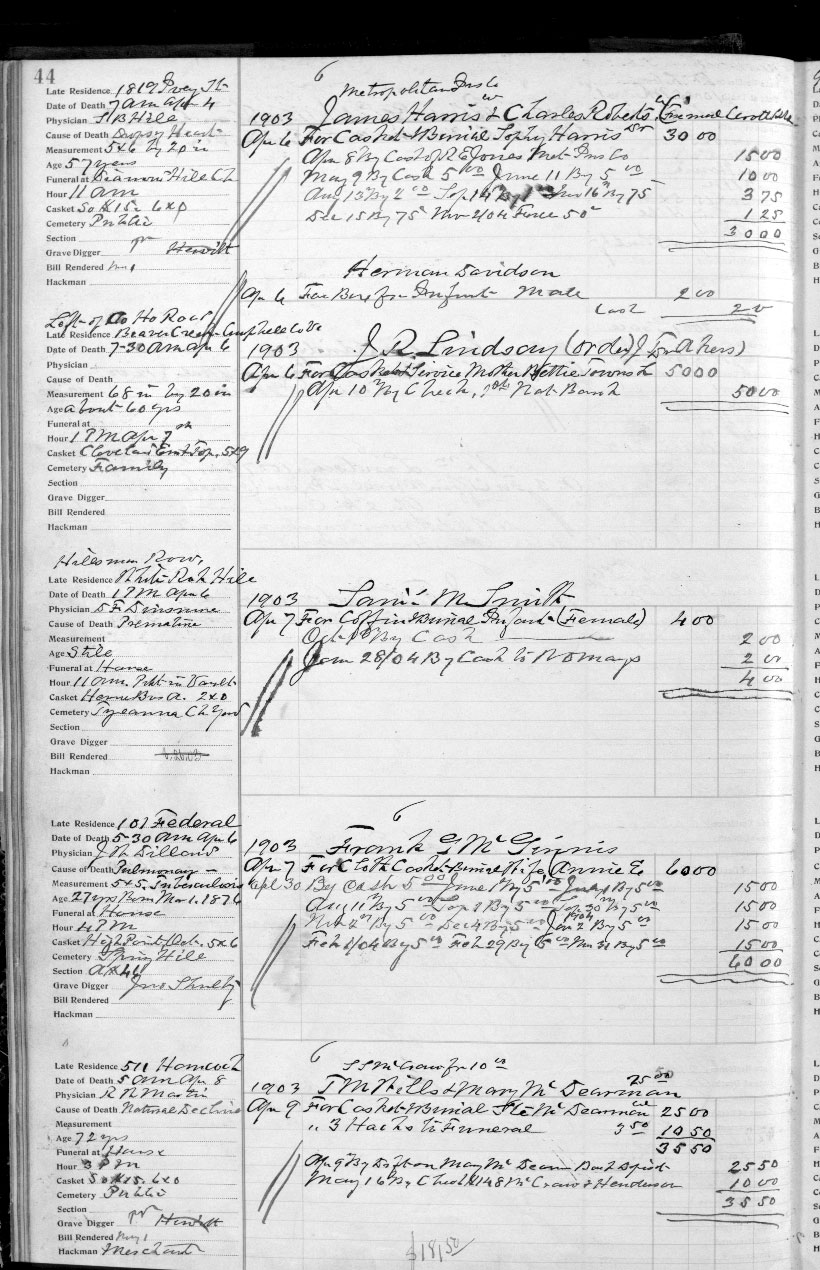 44
6
Metropolitan Ins Co
Late Residence 1819 Ivey St
Date of Death 7 am apr 4
Physician S B Hile
Cause of Death Dropsy Heart
Measurement 5x6 by 20 in
Age 57 years
Funeral at Diamond Hill Ch
Hour 11 am
Casket So K 15 6x0
Cemetery Public
Section
Grave Digger Hewitt
Bill Rendered
Hackman
1903 James Harris & Charles Roberts
Apr 6 For Casket & Burial Sophy Harris 30 00
Apr 8 By Cash of R E Jones Met Ins Co 15 00
May 9 By Cash 5 00 June 11 By 5 00 10 00
Aug 13 By 2 00 Sep 14 By 1 00 Nov 16 By 75 3 75
Dec 15 By 75 Mar 2/04 50 1 25
30 00
Herman Davidson
Apr 6 For Box for Infant Male 2 00
Cash 2 00
Late Residence Beaver Creek Campbell Co Va
Date of Death 7-30 am apr 6
Physician
Cause of Death
Measurement 68 in by 20 in
Age about 60 yrs
Funeral at
Hour 1 PM Apr 7th
Casket Cleveland 5x9
Cemetery Family
Section
Grave Digger
Bill Rendered
Hackman
1903 J R Lindsay (order J
Apr 6 For Casket & Service Mother Bettie 50 00
Apr 10 By Check, Nat Bank 50 00
Hilesman Row,
Late Residence White Rock Hill
Date of Death 1 PM Apr 6
Physician S F Dinsmore
Cause of Death Premature
Measurement
Age Still
Funeral at House
Hour 11 am. Put in Vault
Casket Home 2x0
Cemetery Tyreanna Ch Yard
Section
Grave Digger
Bill Rendered
Hackman
1903 M Smith
Apr 7 For Coffin & Burial Infant (Female) 4 00
Oct By Cash 2 00
Jan 28/04 By Cash to 2 00
4 00
6
Late Residence 101 Federal
Date of Death 5-30 am Apr 6
Physician J W Dillard
Cause of Death Pulmonary
Measurement 5x5. Tuberculosis
Age 27 yrs Born Mar 1. 1876
Funeral at House
Hour 4 PM
Casket High Point Oct. 5x6
Cemetery Spring Hill
Section
Grave Digger Jno
Bill Rendered
Hackman
1903 Frank G McGinnis
Apr 7 For Cloth Casket & Burial Wife (Annie E) 60 00
Apl 30 By Cash 5 00 June 1 By 5 00 July 1 By 5 00 15 00
Aug 11 By 5 00 Sep 2 By 5 00 Sep 30 By 5 00 15 00
Nov 2 By 5 00 Dec 4 By 5 00 Jan 2 1904 By 5 00 15 00
Feb 1/04 By 5 00 Feb 29 By 5 00 Mar 31 By 5 00 15 00
60 00
6
Late Residence 511 Hancock
Date of Death 5 am Apr 8
Physician R N Martin
Cause of Death Natural Decline
Measurement
Age 72 yrs
Funeral at House
Hour 3 PM
Casket So K 15. 6x0
Cemetery Public
Section
Grave Digger Hewitt
Bill Rendered May 1
Hackman Merchant
S S McCraw for 10 00
1903 T M Hills & Mary McDearman 25 50
Apr 9 For Casket & Burial McDearman 25 00
" 3 Hacks to Funeral 3 50 10 50
35 50
Apr 9 By Dft on Mary McDearman 25 50
May 16 By Check 148 McCraw & Henderson 10 00
35 50
$18,50